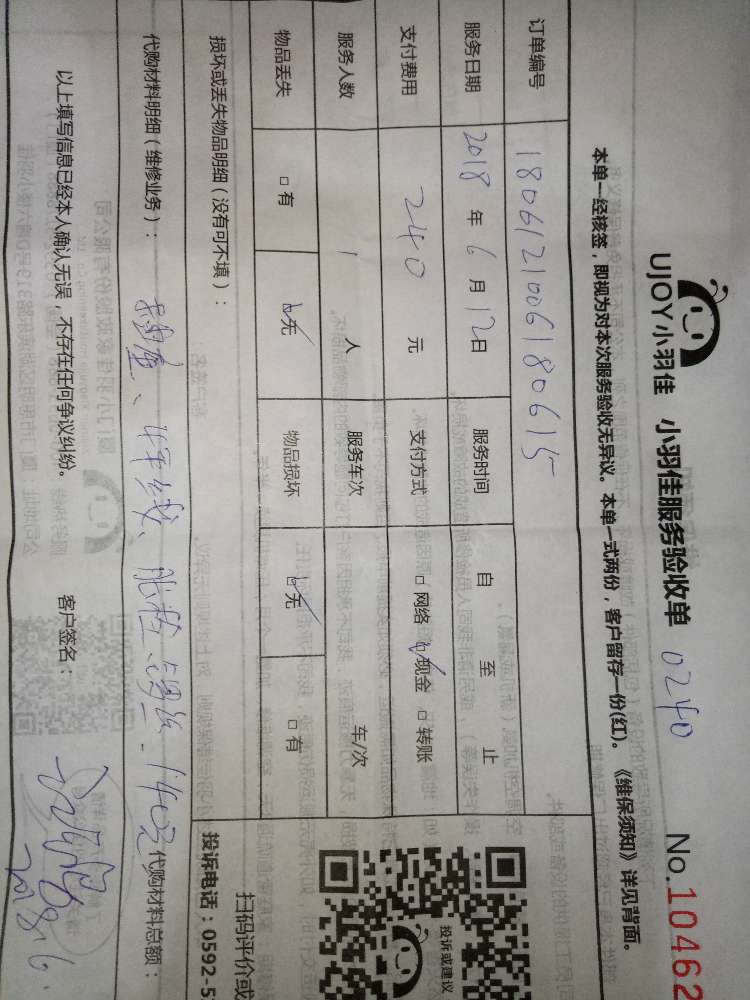 UJOY小羽佳 小羽佳服务验收单 0240 No.10462
本单一经核签，即视为对本次服务验收无异议。本单一式两份，客户留存一份(红)。《维保须知》详见背面。
订单编号 1806121006180615
服务日期 2018年6月12日 服务时间 自 至 止
支付费用 240元 支付方式 □网络 ☑现金 □转账
服务人数 1人 服务车次 车/次
物品丢失 □有 ☑无 物品损坏 ☑无 □有
损坏或丢失物品明细（没有可不填）：
代购材料明细（维修业务）： 140元 代购材料总额：
以上填写信息已经本人确认无误，不存在任何争议纠纷。 客户签名：
投诉或建议
扫码评价或
投诉电话：0592-5